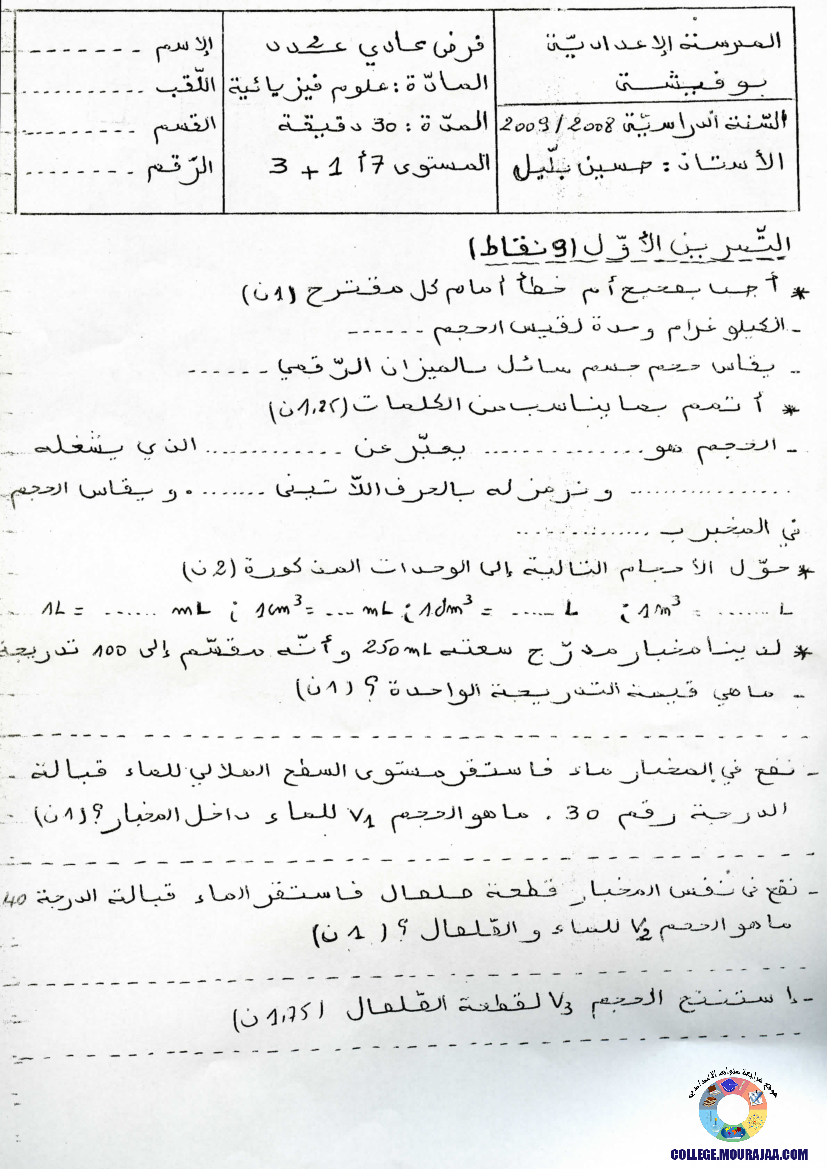 المدرسة الإعدادية
بوفيشة
السّنة الدراسيّة 2008/2009
الأستاذ : حسين بلّيل
فرض عادي عدد 2
المادّة : علوم فيزيائية
المدّة : 30 دقيقة
المستوى 7أ 1 + 3
الإسم .......
اللّقب ...........
القسم ..........
الرّقم ........
التّمرين الأوّل (9 نقاط)
* أجب بصحيح أم خطأ أمام كل مقترح (1ن)
- الكيلوغرام وحدة لقيس الحجم ......
- يقاس حجم جسم سائل بالميزان الرّقمي ......
* أتمم بما يناسب من الكلمات (1,25ن)
- الحجم هو ............... يعبّر عن ............. الذي يشغله
................ ونرمز له بالحرف اللاّتيني ....... . ويقاس الحجم
في المخبر بـ ..............
* حوّل الأحجام التالية إلى الوحدات المذكورة (2ن)
1L = ...... mL ; 1cm³ = ... mL ; 1dm³ = ..... L ; 1m³ = ....... L
* لدينا مخبار مدرّج سعته 250mL وأنّه مقسّم إلى 100 تدريجة
- ماهي قيمة التدريجة الواحدة ؟ (1ن)
- نضع في المخبار ماء فاستقر مستوى السطح الهلالي للماء قبالة
الدرجة رقم 30 . ماهو الحجم V1 للماء داخل المخبار ؟ (1ن)
- نضع في نفس المخبار قطعة صلصال فاستقر الماء قبالة الدرجة 40
ماهو الحجم V2 للماء والصّلصال ؟ (1ن)
- استنتج الحجم V3 لقطعة الصّلصال (1,75ن)
موقع مراجعة
COLLEGE.MOURAJAA.COM